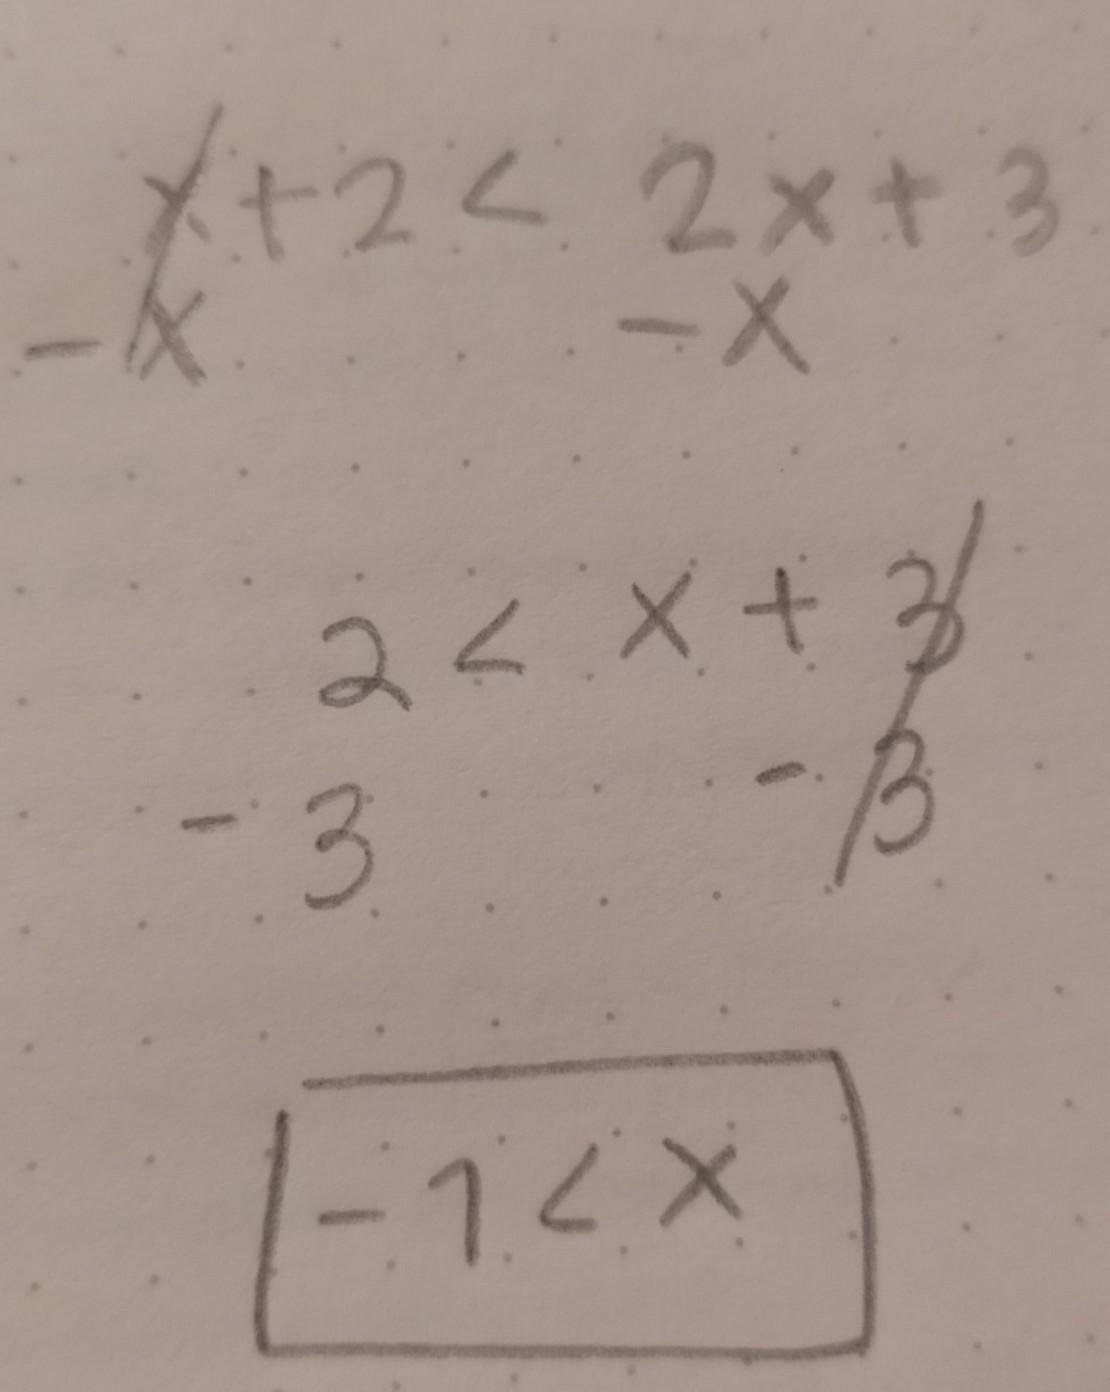 x + 2 < 2x + 3
- x - x
2 < x + 3
- 3 - 3
- 1 < x